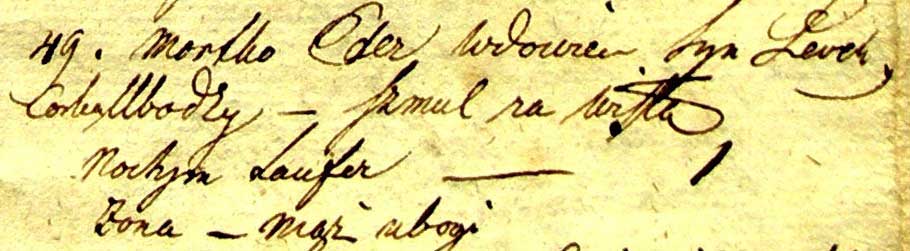 49. Mortko Eder wdowiec syn Lever,
Corka Ubodzy — Szmul na Wisłą
Nochym Laufer — 1
Zona — mąż ubogi